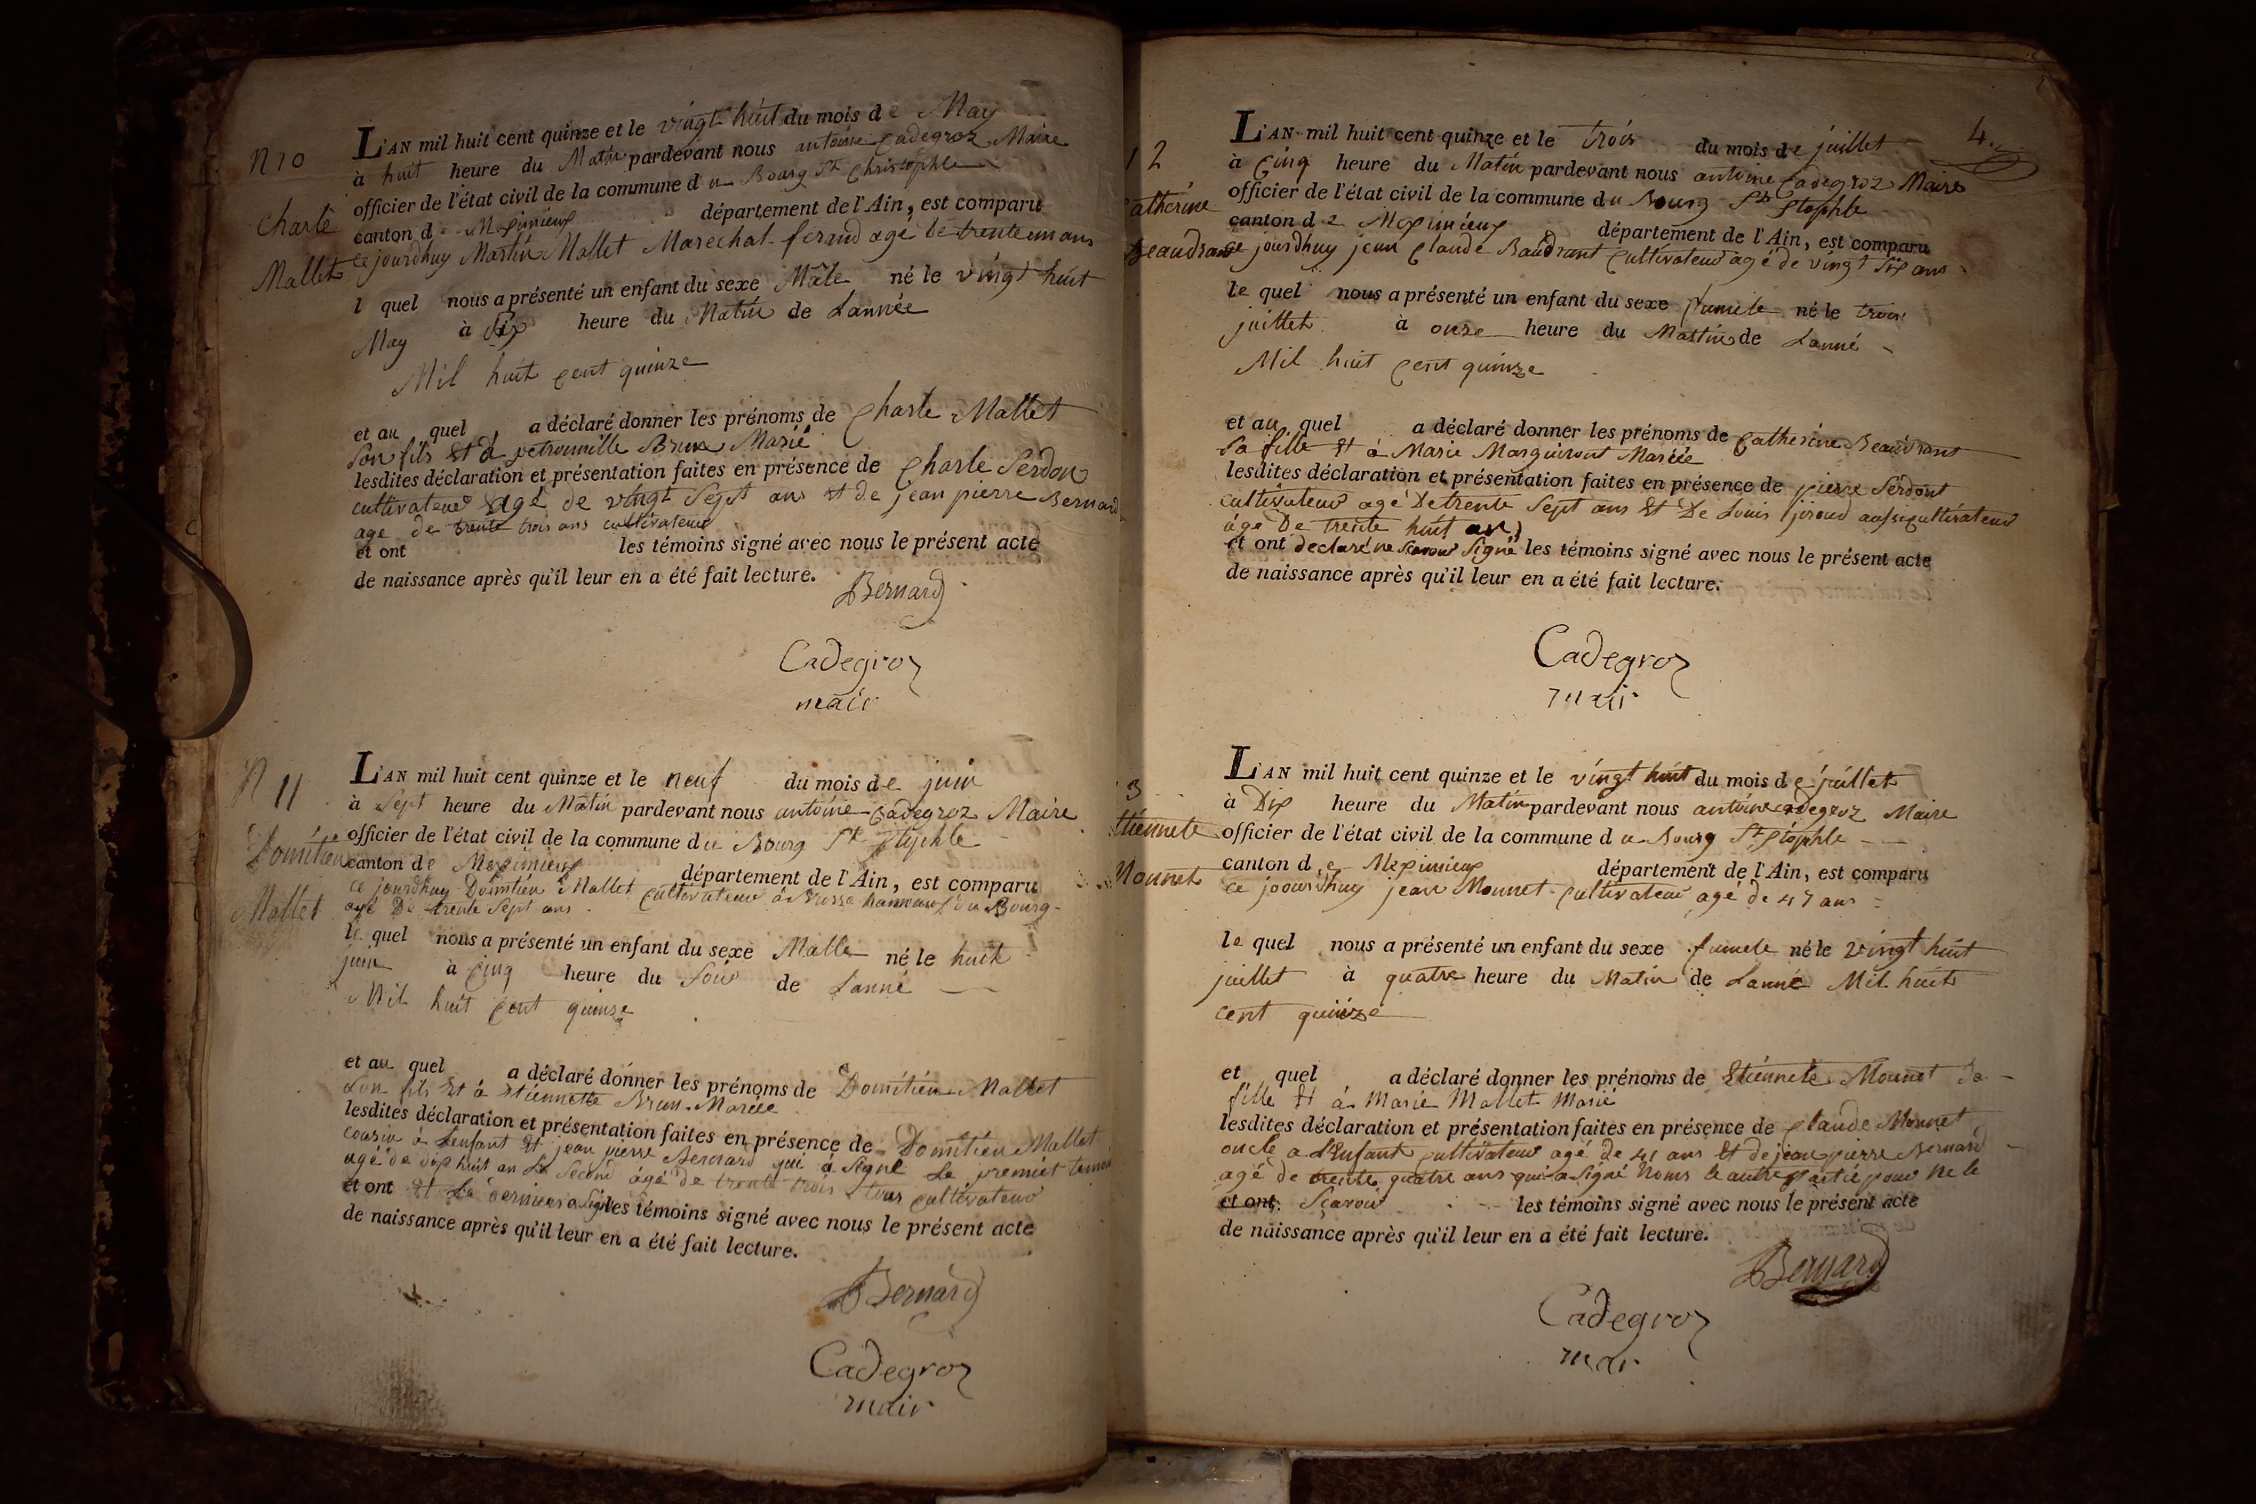 N 10
Charle
Mallet
L'AN mil huit cent quinze et le vingt huit du mois de May
à huit heure du Matin pardevant nous antoine Cadegroz Maire
officier de l'état civil de la commune du Bourg St Christophle
canton de Meximieux département de l'Ain, est comparu
ce jourdhuy Martin Mallet Marechal ferand agé de trente un ans
l quel nous a présenté un enfant du sexe Mâle né le vingt huit
May à Six heure du Matin de Lannée
Mil huit cent quinze
et au quel a déclaré donner les prénoms de Charle Mallet
Son fils Et à petrounille Brun Marié
lesdites déclaration et présentation faites en présence de Charle Serdon
cultivateur agé de vingt Sept ans et de jean pierre Bernard
age de trente trois ans cultivateur
et ont les témoins signé avec nous le présent acte
de naissance après qu'il leur en a été fait lecture.
Bernard
Cadegroz
mair
N 11
Domitien
Mallet
L'AN mil huit cent quinze et le neuf du mois de juin
à Sept heure du Matin pardevant nous antoine Cadegroz Maire
officier de l'état civil de la commune du Bourg St Stophle
canton de Meximieux département de l'Ain, est comparu
ce jourdhuy Domitien Mallet cultivateur à hameau du Bourg
agé De trente Sept ans
le quel nous a présenté un enfant du sexe Malle né le huit
juin à Cinq heure du Soir de Lanné
Mil huit Cent quinse
et au quel a déclaré donner les prénoms de Domitien Mallet
Son fils Et à Etiennette Brun Mariée
lesdites déclaration et présentation faites en présence de Domitien Mallet
cousin à Lenfant Et jean pierre Bernard qui à Signé Le premier temoin
agé de dix huit an Le Second agé de trente trois tous cultivateur
et ont Et Le dernier a Signé les témoins signé avec nous le présent acte
de naissance après qu'il leur en a été fait lecture.
Bernard
Cadegroz
mair
4
12
atherine
Beaudrant
L'AN mil huit cent quinze et le trois du mois de juillet
à Cinq heure du Matin pardevant nous antoine Cadegroz Maire
officier de l'état civil de la commune du Bourg St Stophle
canton de Meximieux département de l'Ain, est comparu
ce jourdhuy jean Claude Baudrant Cultivateur agé de vingt Six ans
le quel nous a présenté un enfant du sexe fumele né le trois
juillet à onze heure du Mattin de Lanné
Mil huit Cent quinze
et au quel a déclaré donner les prénoms de Catherine Beaudrant
Sa fille Et à Marie Marguiront Mariée
lesdites déclaration et présentation faites en présence de pierre Serdont
cultivateur agé De trente Sept ans Et De Louis jiroud aussi cultivateur
agé De trente huit ans
et ont declaré ne Scavoir Signé les témoins signé avec nous le présent acte
de naissance après qu'il leur en a été fait lecture.
Cadegroz
mair
3
Etiennete
Monnet
L'AN mil huit cent quinze et le vingt huit du mois de juillet
à Dix heure du Matin pardevant nous antoine cadegroz Maire
officier de l'état civil de la commune du Bourg St Stophle
canton de Meximieux département de l'Ain, est comparu
ce joourdhuy jean Monnet Cultivateur agé de 47 ans
le quel nous a présenté un enfant du sexe fumele né le vingt huit
juillet à quatre heure du Matin de Lanné Mil huit
cent quinze
et quel a déclaré donner les prénoms de Etiennete Monnet Sa
fille Et à Marie Mallet Marié
lesdites déclaration et présentation faites en présence de Claude Monnet
oncle a L'Enfant Cultivateur agé de 41 ans Et de jean pierre Bernard
agé de trente quatre ans qui a Signé Nous le autre partié pour ne le
et ont Scavoir les témoins signé avec nous le présent acte
de naissance après qu'il leur en a été fait lecture.
Bernard
Cadegroz
mair